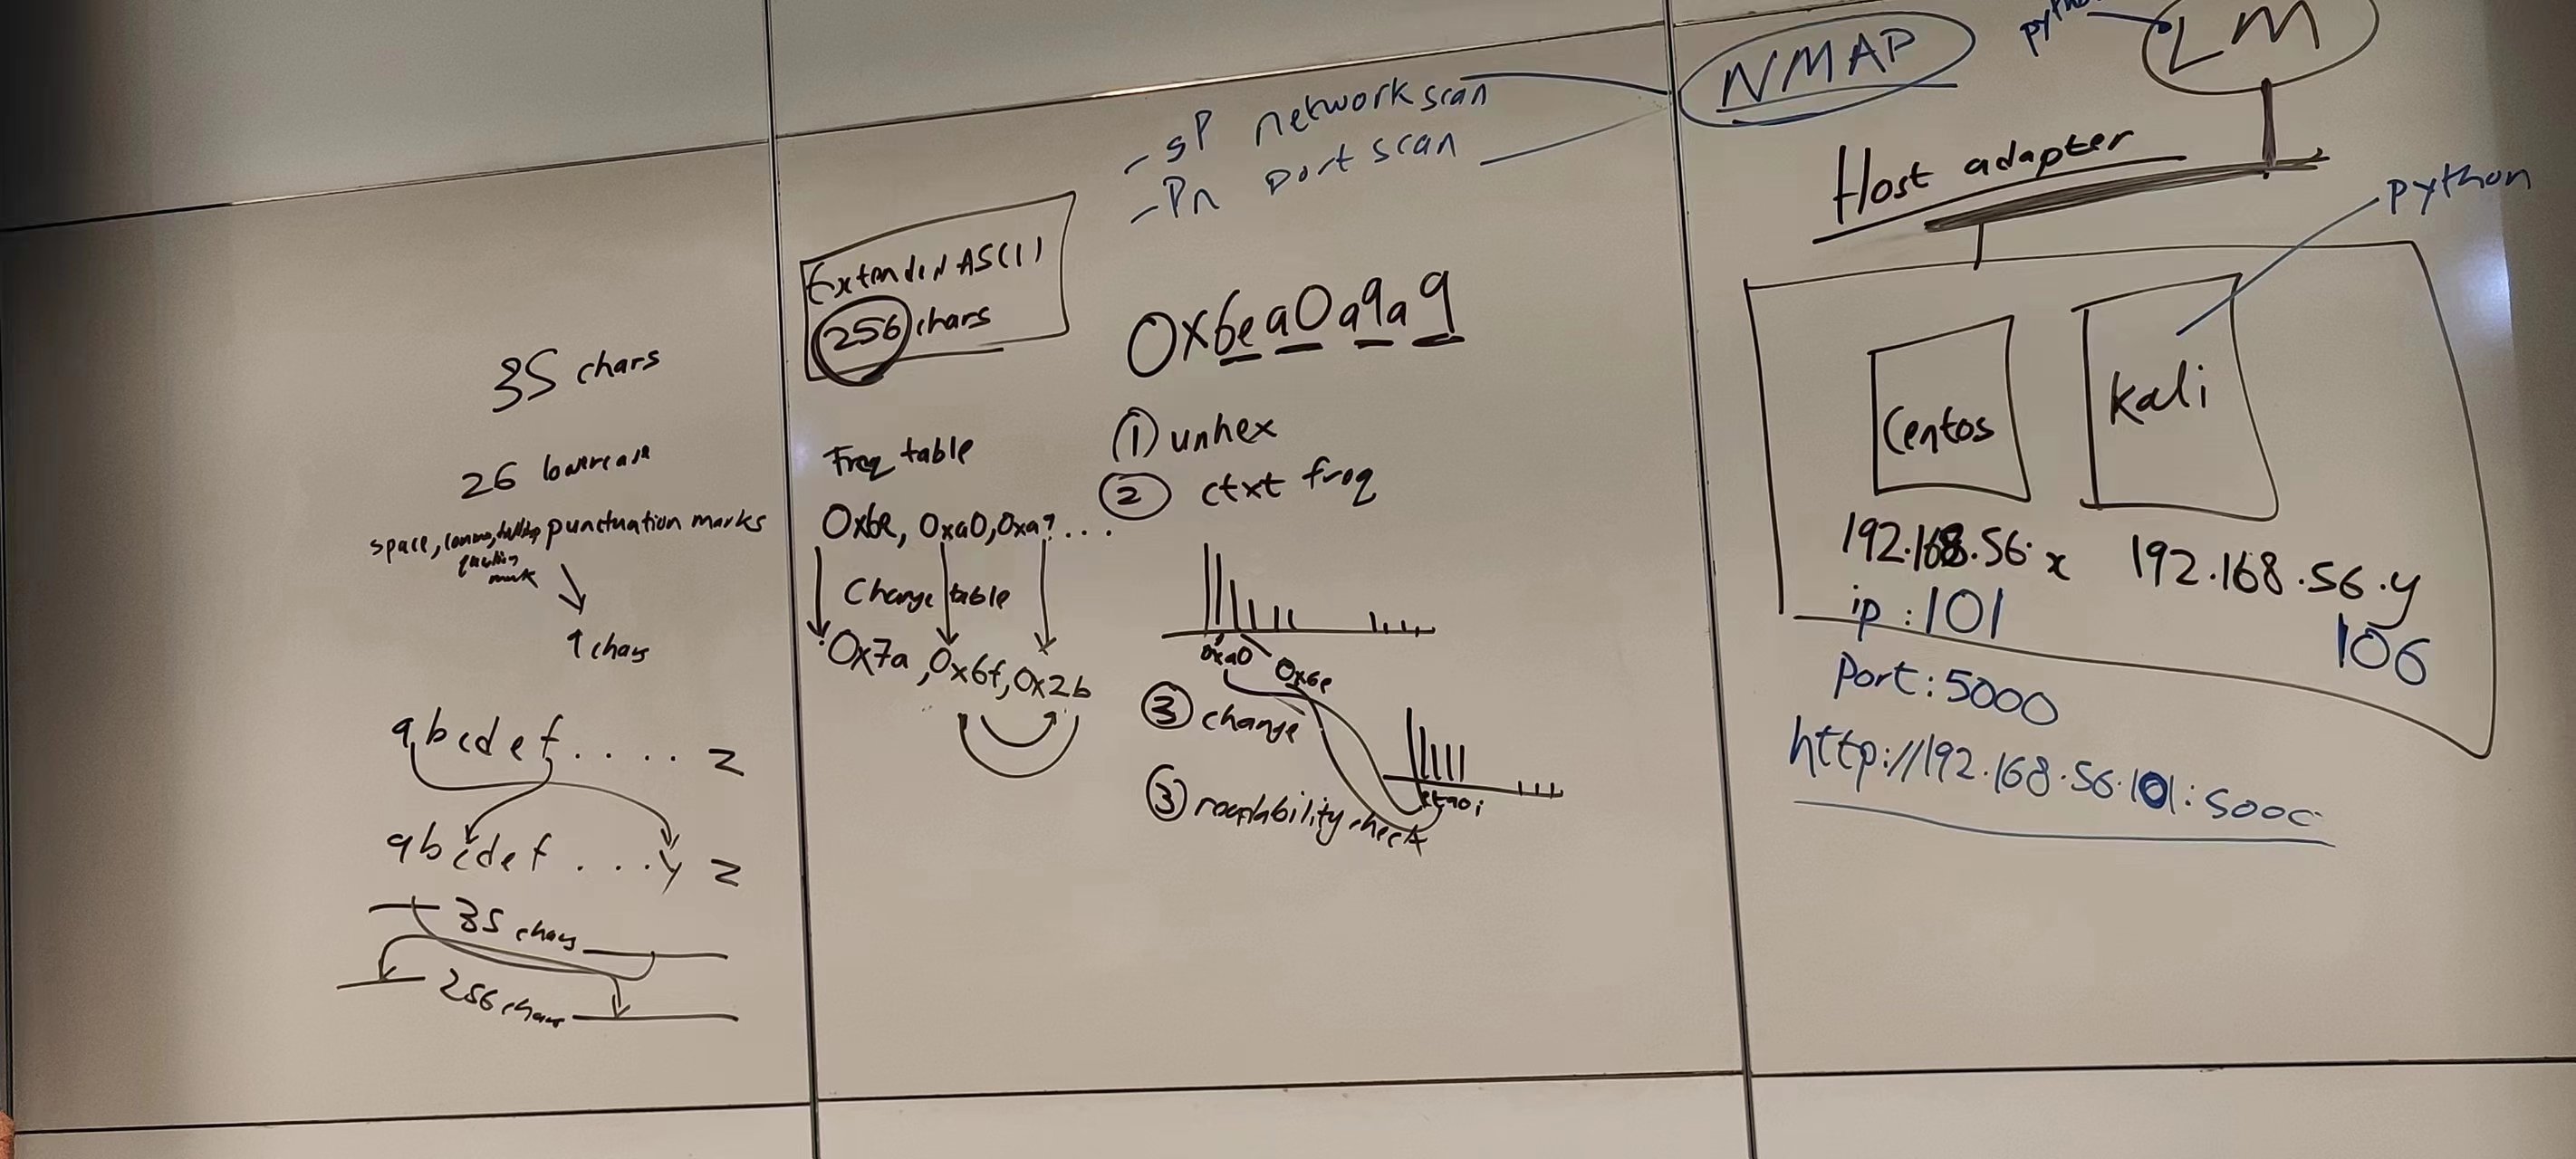 35 chars
26 lowercase
space, comma, punctuation marks
question
mark
9 chars
abcdef..... z
abcdef...y z
35 chars
256 chars
Extended ASCII
256 chars
Freq table
0x6e, 0xa0, 0xa9...
Change table
0x7a, 0x6f, 0x2b
-sP network scan
-Pn port scan
0x6ea0a9a9
① unhex
② ctxt freq
0xa0
0x6e
③ change
etaoi
③ readability check
NMAP
python
LM
Host adapter
python
Centos
Kali
192.168.56.x
192.168.56.y
ip:101
106
Port:5000
http://192.168.56.101:5000